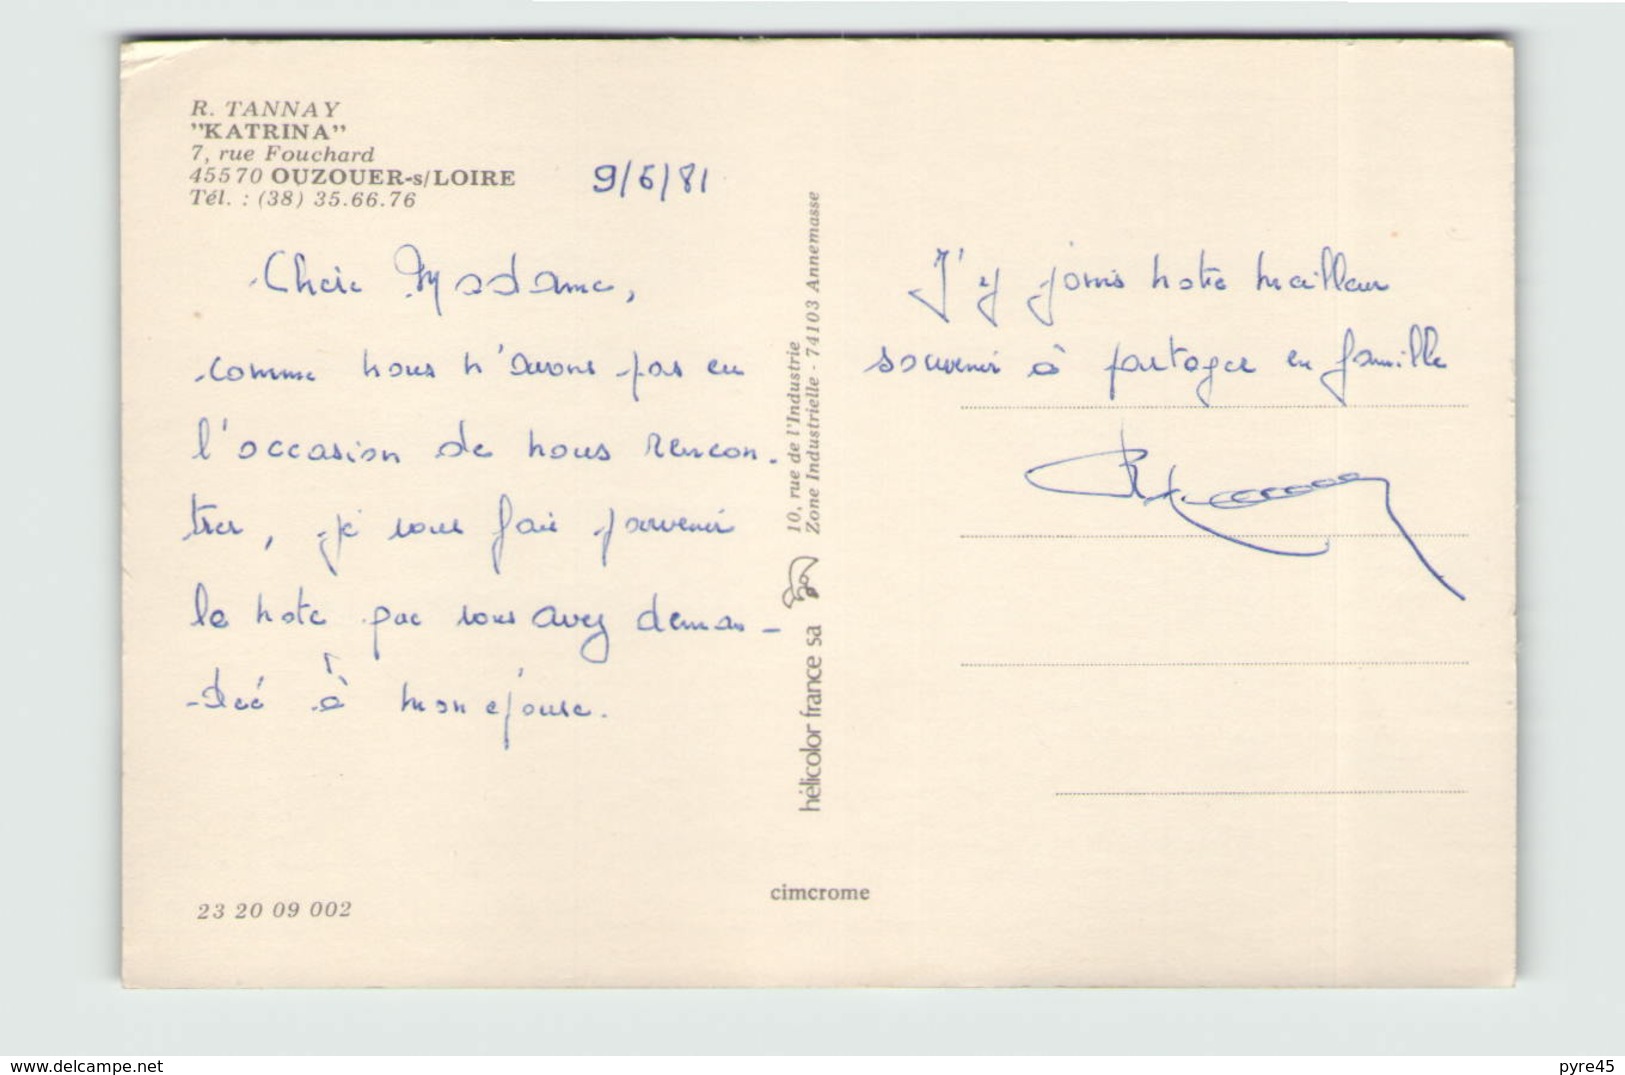 R. TANNAY
"KATRINA"
7, rue Fouchard
45570 OUZOUER-s/LOIRE
Tél. : (38) 35.66.76
9/6/81
Chère Madame,
comme nous n'avons pas eu
l'occasion de nous rencon-
trer, je vous fais parvenir
la note que vous avez deman-
dée à mon épouse.
23 20 09 002
10, rue de l'Industrie
Zone Industrielle - 74103 Annemasse
hélicolor france sa
cimcrome
J'y joins notre meilleur
souvenir à partager en famille
www.delcampe.net
pyre45